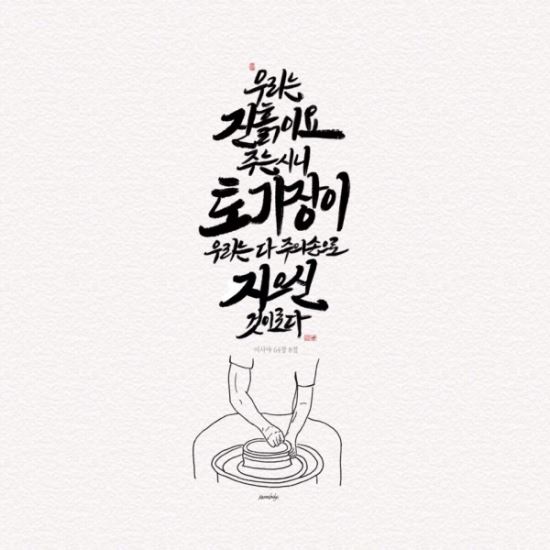 우리는
진흙이요
주는 시니
토기장이
우리는 다 주의 손으로
지으신
것이로다
이사야 64장 8절